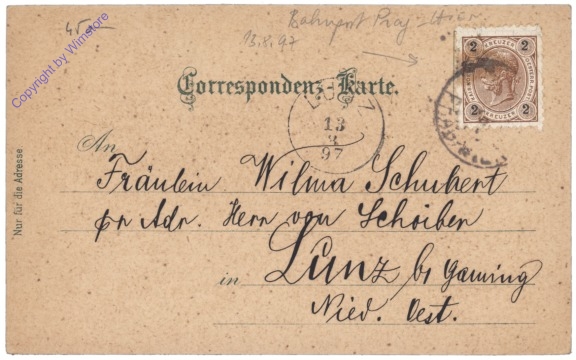 45.-
Bahnpost Prag - Wien
13.8.97
Copyright by Wimstore
Correspondenz-Karte.
2 KREUZER 2
2 KREUZER 2
LUNZ
13
8
97
An
Fräulein Wilma Schubert
pr Adr. Herrn von Schoiber
in Lunz b/ Gaming
Nied. Oest.
Nur für die Adresse